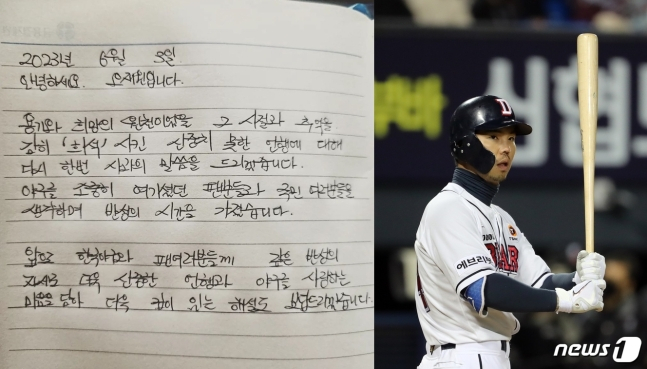 2023년 6월 5일
안녕하세요. 오재원입니다.
용기와 희망의 원천이었을 그 시절과 추억을
감히 '희석' 시킨 신중치 못한 언행에 대해
다시 한번 사과의 말씀을 드리겠습니다.
야구를 소중히 여기셨던 팬분들과 국민 여러분들을
생각하며 반성의 시간을 가졌습니다.
앞으로 한국야구와 팬여러분들께 깊은 반성의
자세로 더욱 신중한 언행과 야구를 사랑하는
마음을 담아 더욱 깊이 있는 해설로 보답드리겠습니다.
신협
D
에브리
BEARS
news1